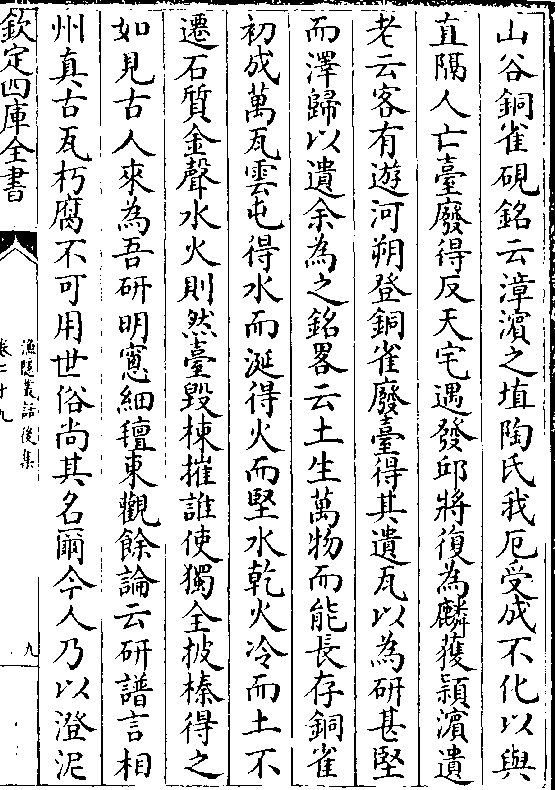 山谷銅雀硯銘云漳濱之埴陶氏我厄受成不化以與
直隅人亡臺廢得反天宅遇發邱將復為麟獲潁濵遺
老云客有遊河朔登銅雀廢臺得其遺瓦以為研甚堅
而澤歸以遺余為之銘畧云土生萬物而能長存銅雀
初成萬瓦雲屯得水而涎得火而堅水乾火冷而土不
遷石質金聲水火則然臺毁棟摧誰使獨全披榛得之
如見古人來為吾研明窻細氊東觀餘論云研譜言相
州真古瓦朽腐不可用世俗尚其名爾今人乃以澄泥
欽定四庫全書
漁隱叢話後集
卷二十九
九